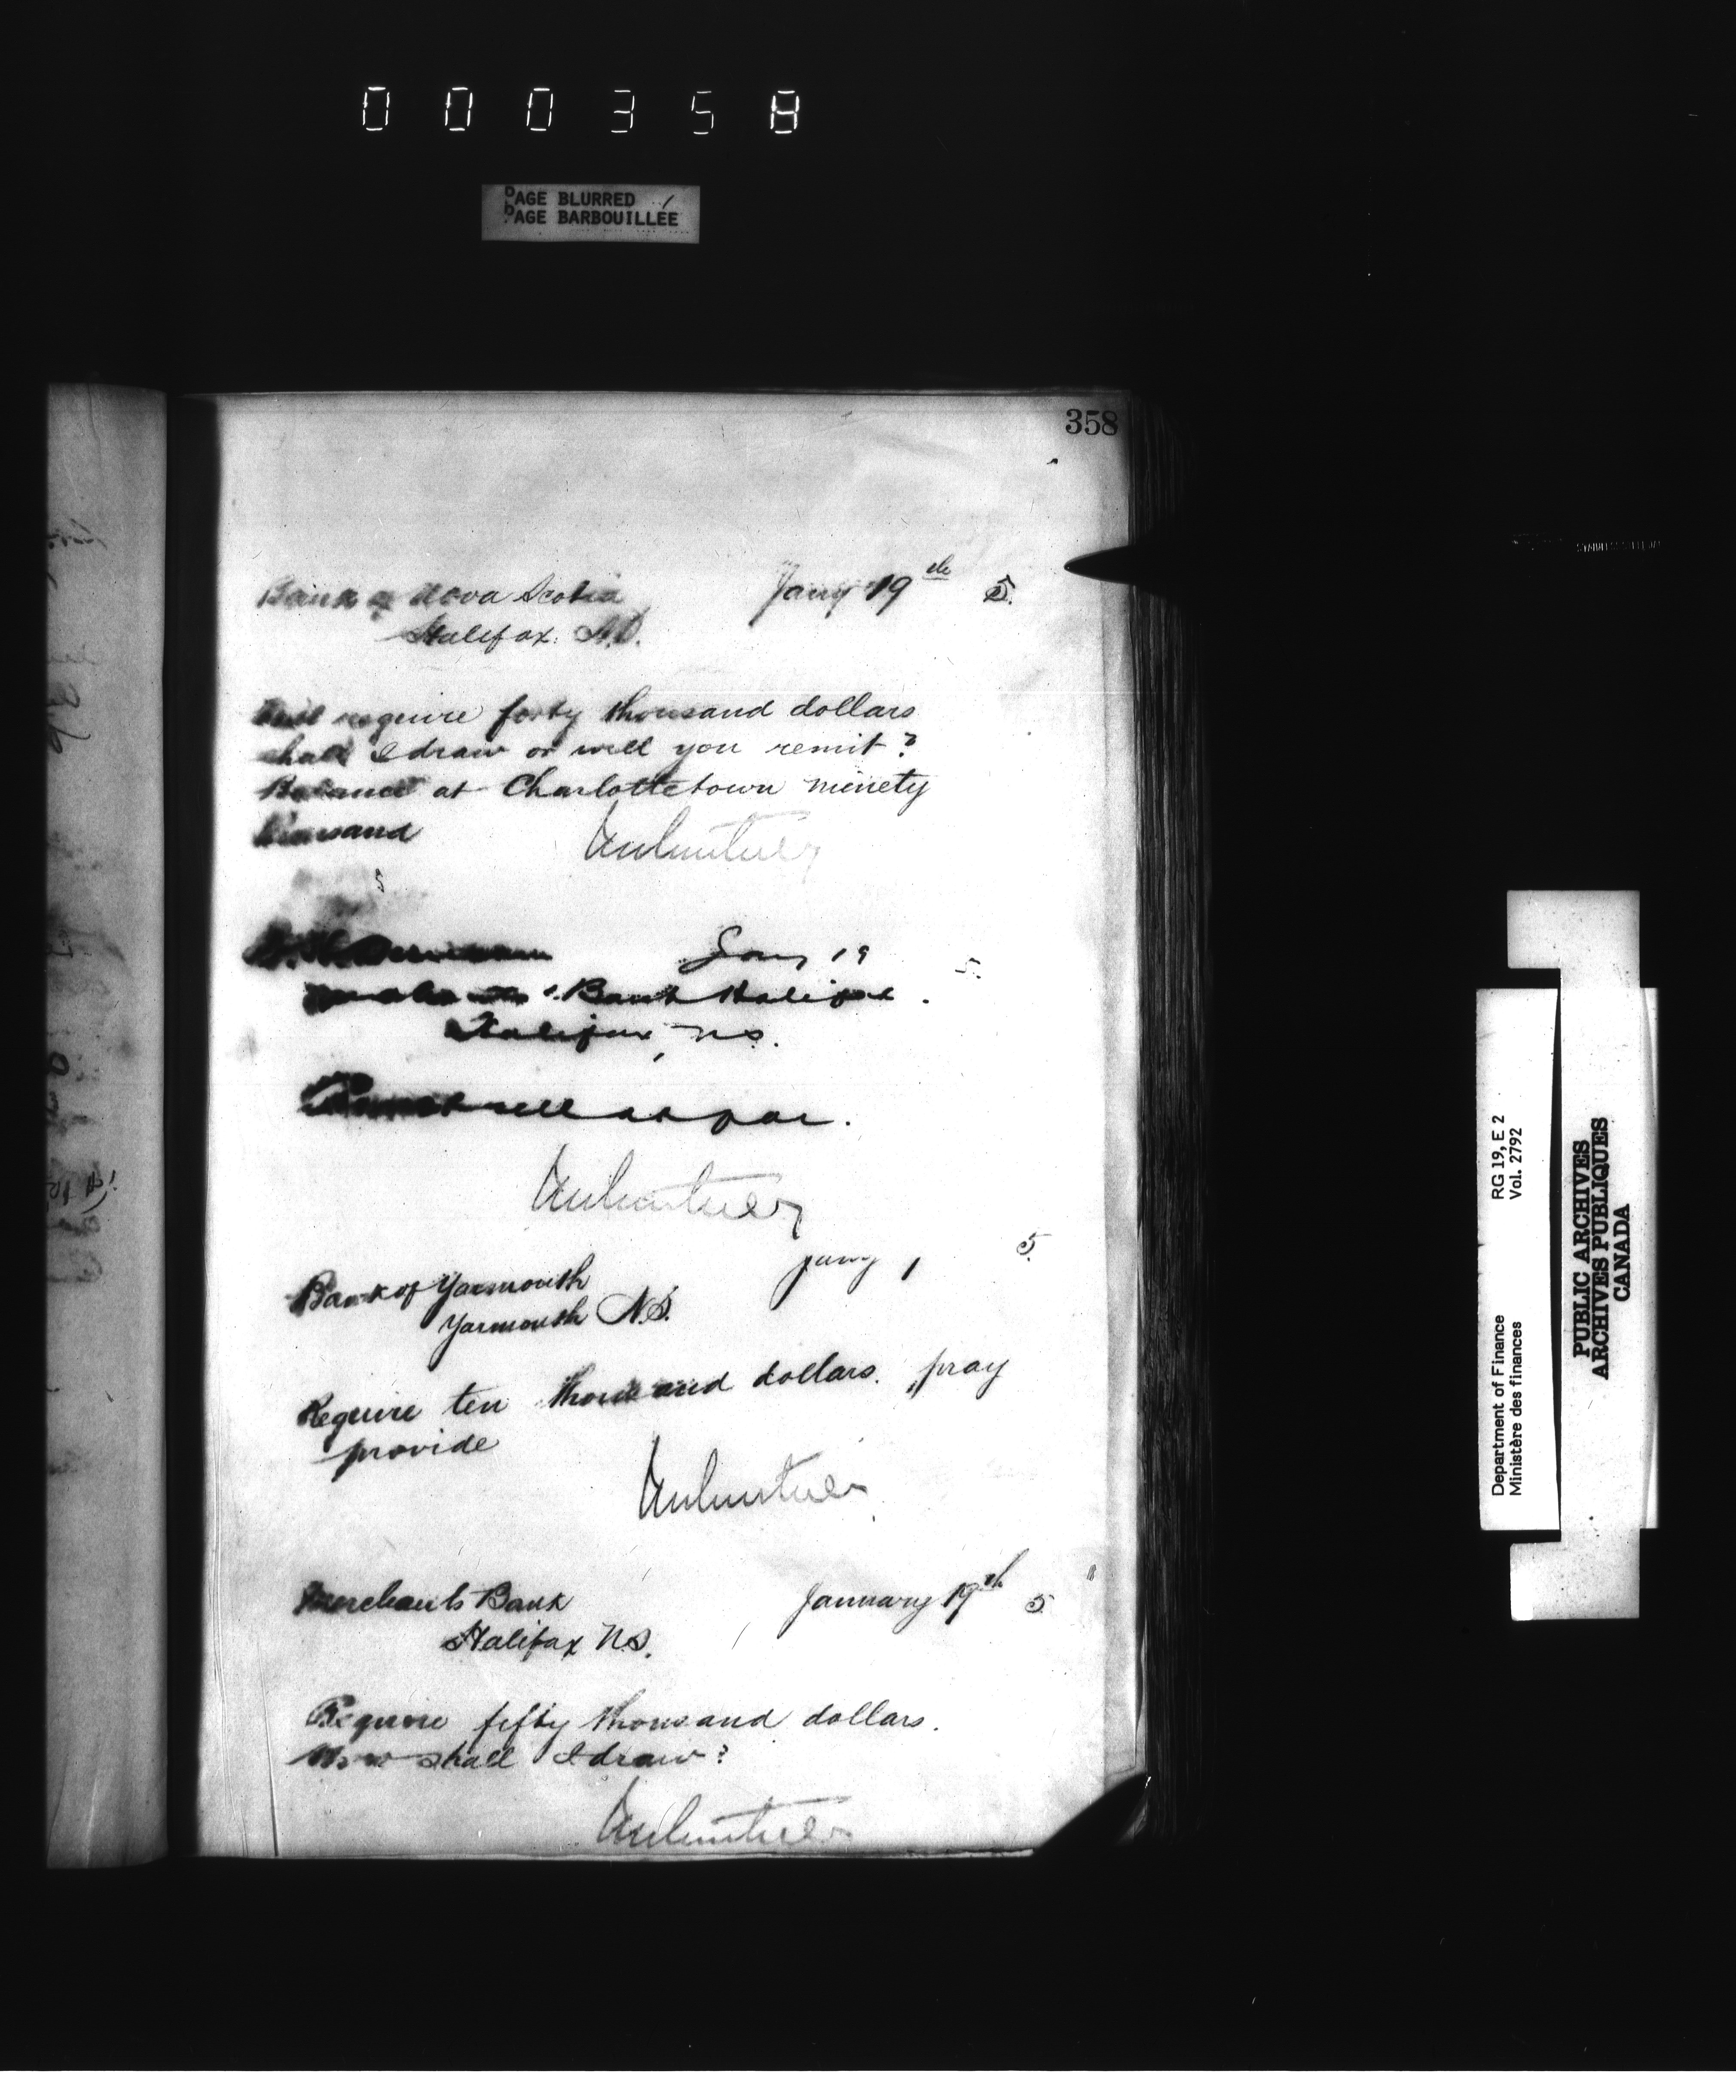 000358
PAGE BLURRED
PAGE BARBOUILLÉE
358
Bank of Nova Scotia Jany 19th 5.
Halifax. N.S.
require forty thousand dollars
shall I draw or will you remit?
Balance at Charlottetown ninety
thousand
5
Jany 19 5.
Bank Halifax.
Halifax, N.S.
sell at par.
Bank of Yarmouth Jany 1 5.
Yarmouth N.S.
Require ten thousand dollars. pray
provide
Merchants Bank January 19th 5
Halifax N.S.
Require fifty thousand dollars.
How shall I draw?
Department of Finance RG 19, E 2
Ministère des finances Vol. 2792
PUBLIC ARCHIVES
ARCHIVES PUBLIQUES
CANADA